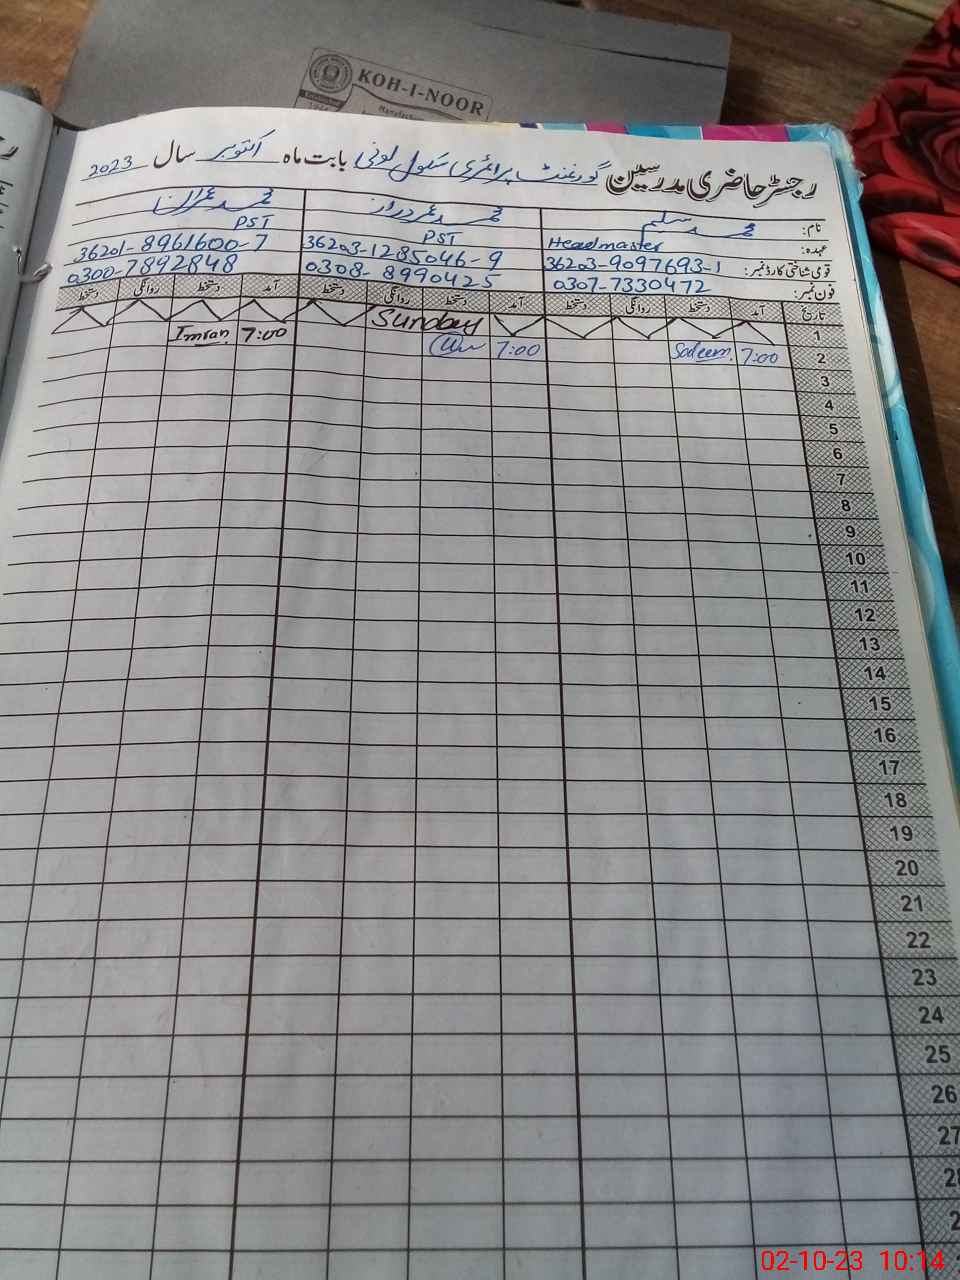 KOH-I-NOOR
رجسٹر حاضری مدرسین گورنمنٹ پرائمری سکول لوئی بابت ماہ اکتوبر سال 2023
نام: محمد سلیم محمد عمر دراز محمد عمران
عہدہ: Headmaster PST PST
قومی شناختی کارڈ نمبر: 36203-9097693-1 36203-1285046-9 36201-8961600-7
فون نمبر: 0307-7330472 0308-8990425 0300-7892848
تاریخ آمد دستخط روانگی دستخط آمد دستخط روانگی دستخط آمد دستخط روانگی دستخط
1 Sunday
2 7:00 Saleem 7:00 7:00 Imran
3
4
5
6
7
8
9
10
11
12
13
14
15
16
17
18
19
20
21
22
23
24
25
26
27
02-10-23 10:14